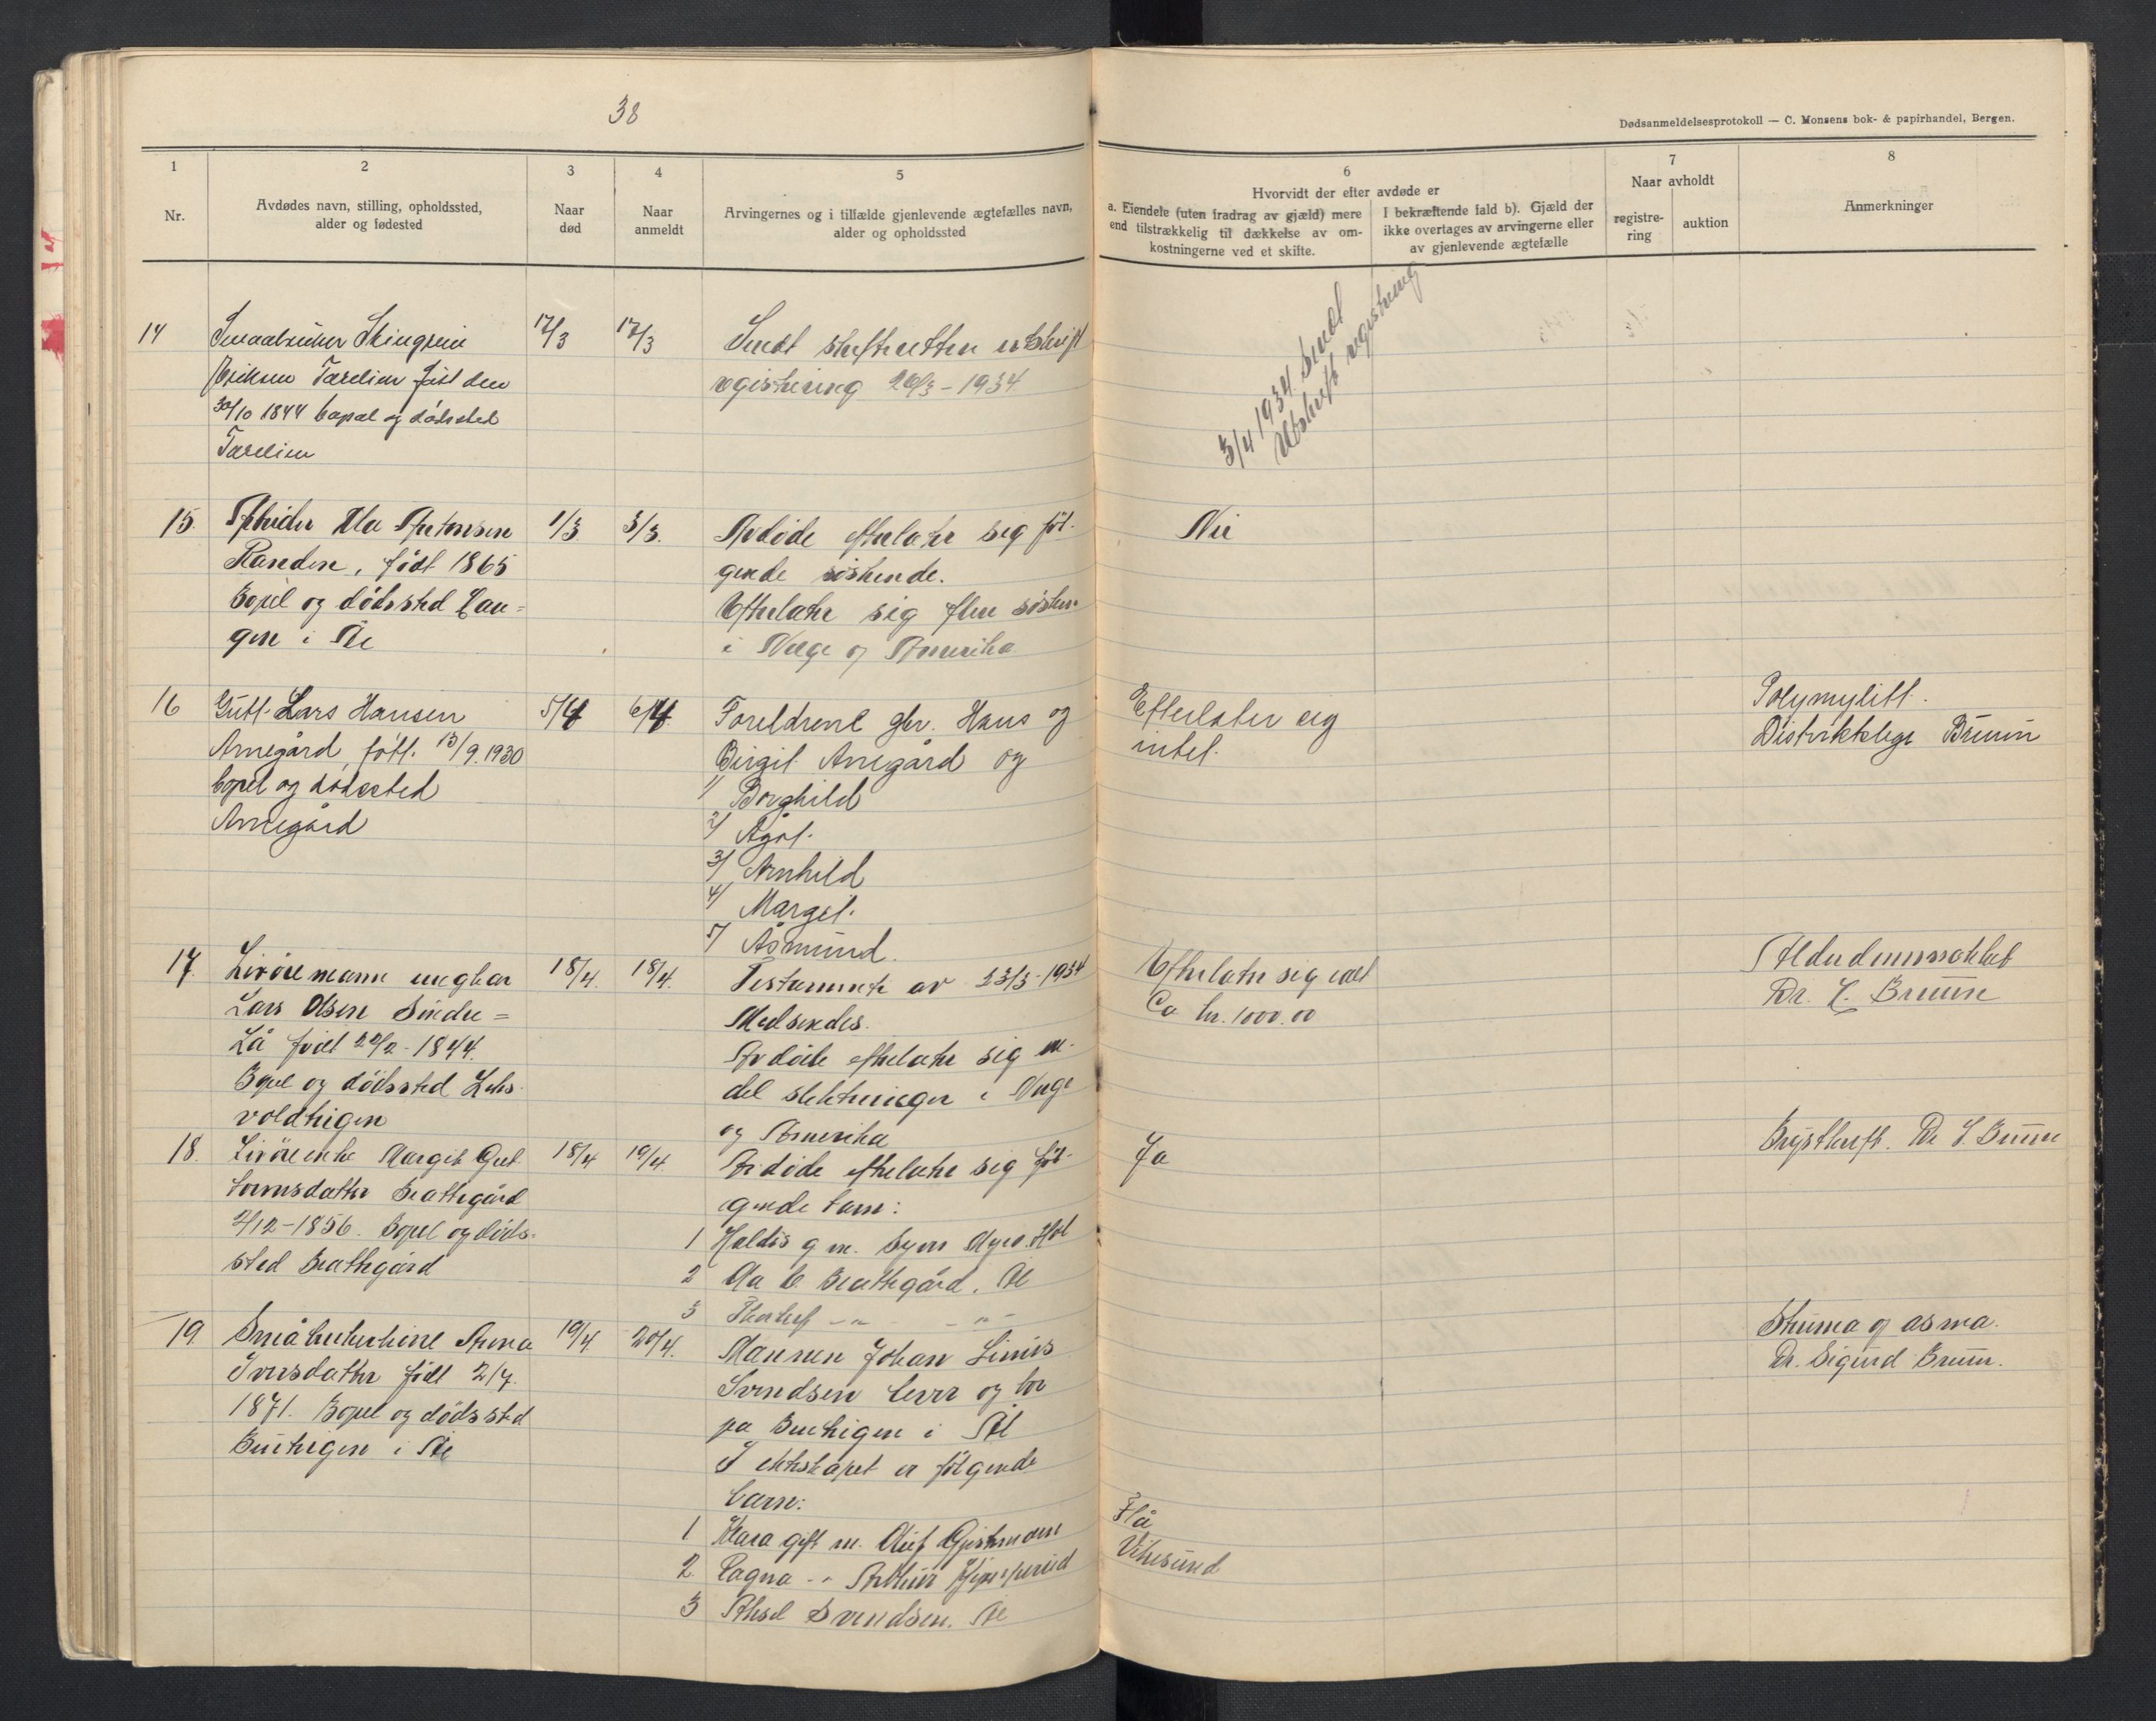 38
Dødsanmeldelsesprotokoll — C. Monsens bok- & papirhandel, Bergen.
1
Nr.
2
Avdødes navn, stilling, opholdssted,
alder og fødested
3
Naar
død
4
Naar
anmeldt
5
Arvingernes og i tilfælde gjenlevende ægtefælles navn,
alder og opholdssted
6
Hvorvidt der efter avdøde er
a. Eiendele (uten fradrag av gjæld) mere
end tilstrækkelig til dækkelse av om-
kostningerne ved et skifte.
I bekræftende fald b). Gjæld der
ikke overtages av arvingerne eller
av gjenlevende ægtefælle
7
Naar avholdt
registre-
ring
auktion
8
Anmerkninger
14
Smaabruker
Eriksen Tærelien født den
30/10 1844 bopæl og dødssted
Tærelien
17/3
17/3
Sendt skifteretten utskrift
registrering 26/3 - 1934
3/4 1934 Sendt
Utskrift registrering
15.
Arbeider Ola Antonsen
Randen, født 1865
Bopel og dødssted Hau=
gen i Ål
1/3
3/3.
Avdøde efterlater sig føl-
gende søskende.
Efterlater sig flere søsken
i Norge og Amerika
Nei
16
Gutt. Lars Hansen
Arnegård, født. 13/9.1930
bopel og dødssted
Arnegård
5/4
6/4
Foreldrene gbr. Hans og
Birgit Arnegård og
1/ Borghild
2/ Ågot.
3/ Arnhild
4/ Margit.
5/ Åsmund.
Efterlater sig
intet.
Distriktslege Bruun
17.
Livøremann ungkar
Lars Olsen Sindre=
Lå født 22/2 - 1844.
Bopel og dødssted
18/4.
18/4.
Testamente av 23/3-1934
Medsendes.
Avdøde efterlater sig en
del slektninger i Norge
og Amerika
Efterlater sig
Ca kr. 1000.00
Alderdomssvakhet
Dr. S. Bruun
18.
Livøreenke Margit Gut
tormsdatter Brattegård
2/12-1856. Bopel og døds-
sted Brattegård
18/4
19/4.
Avdøde efterlater sig føl-
gende barn:
1 Haldis g m. Myro. Hol
2 Ola E Brattegård. Ål
3 -"- -"-
Ja
Brystkreft. Dr S. Bruun
19.
Småbrukerkone Anna
Iversdatter født 2/7.
1871. Bopel og dødssted
i Ål
19/4
20/4.
Mannen Johan Linius
Svendsen lever og bor
på i Ål
I ekteskapet er følgende
barn:
1 Klara gift m. Olaf
2. Ragna -"- Arthur
3 Aksel Svendsen. Ål
Flå
Vikesund
Struma og asma.
Dr. Sigurd Bruun.